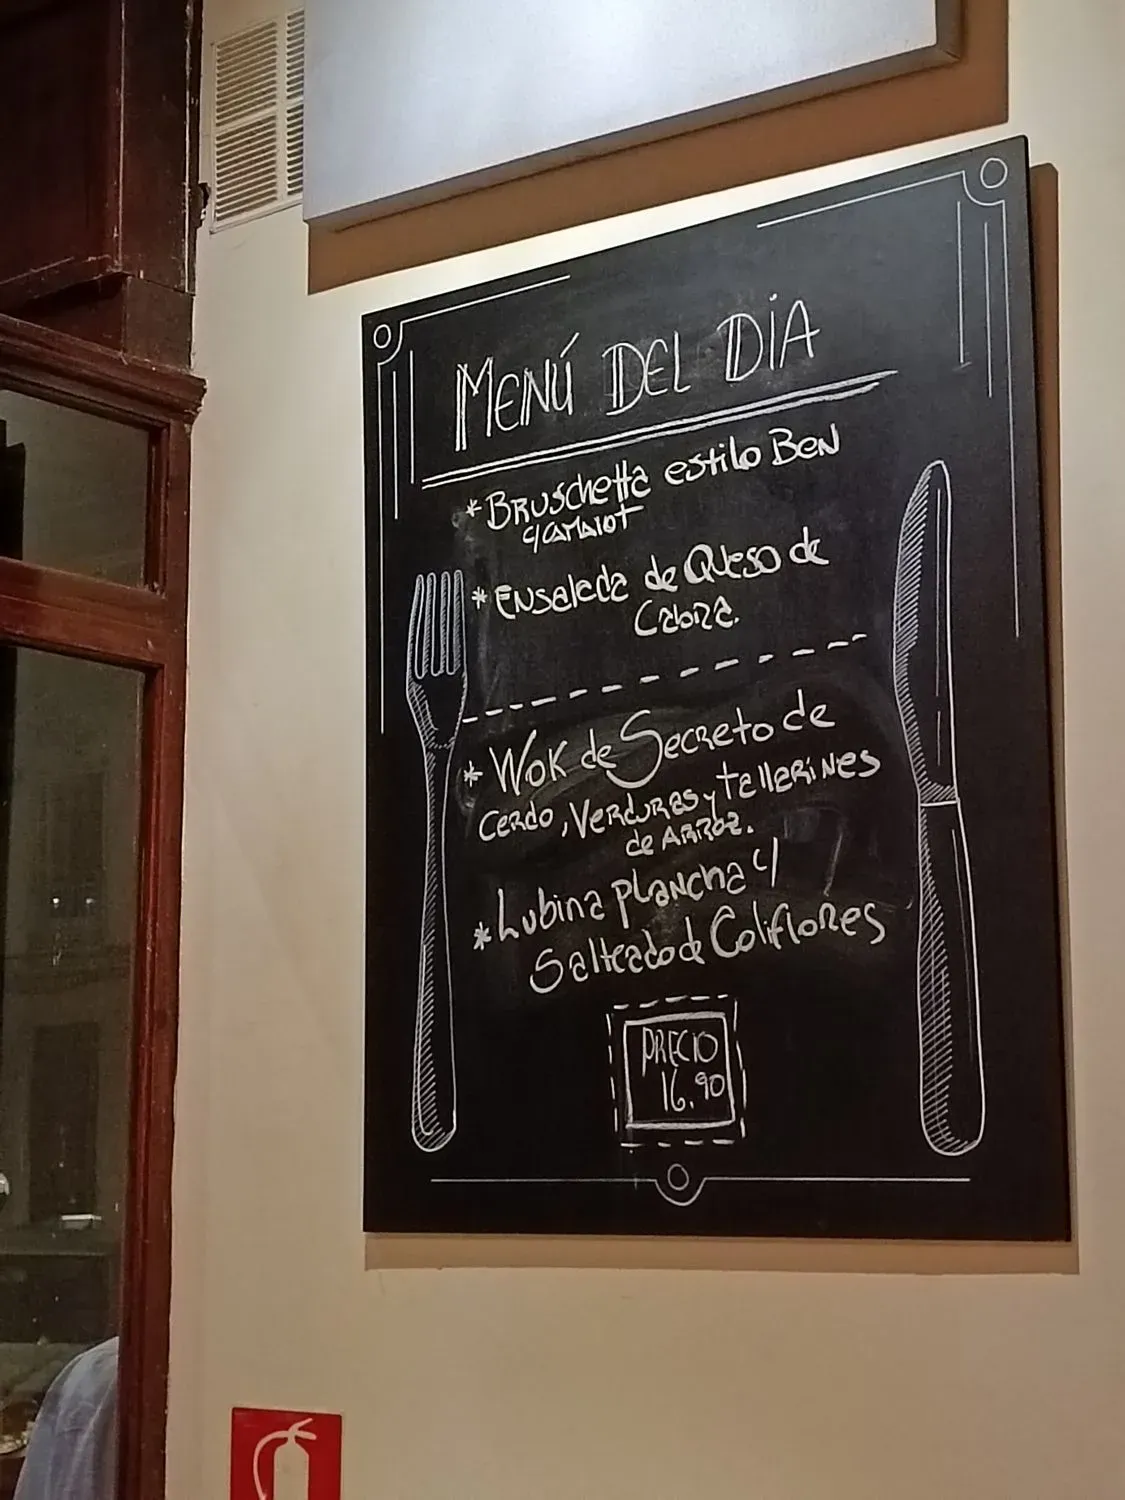 MENÚ DEL DIA
*BRUSChettA estilo BEN
c/CAMAIOT
*ENSALADA de QUESO de
CABRA.
* WOK de SECRETO de
CERDO, VERDURAS y tallERINES
de ARROZ.
*Lubina PLANCHA c/
Salteado de ColiflORES
PRECIO
16.90